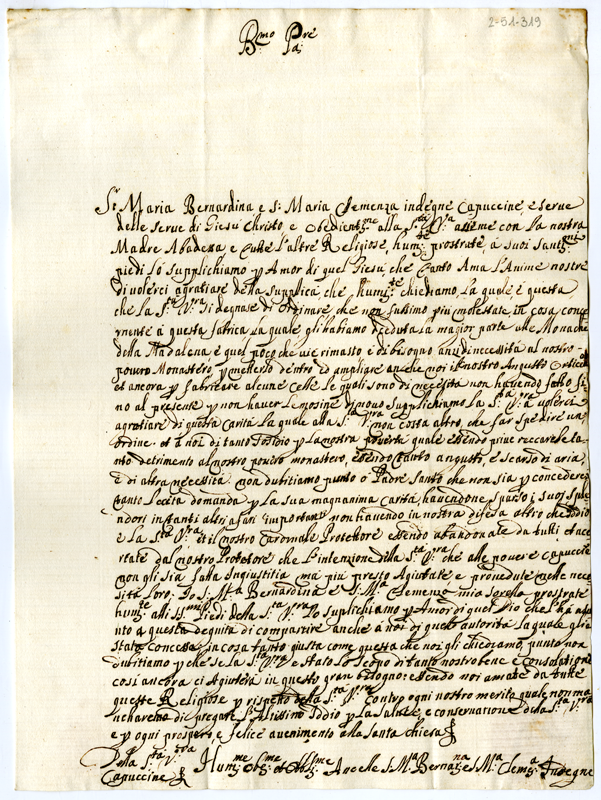 2-51-319
Bmo Pre
Sr Maria Bernardina e Sr Maria Clemenza indegne Capuccine, e serue
delle serue di Giesù Christo, e obedientme alla Sta Va assieme con la nostra
Madre Abadessa e tutte l'altre Religiose, humte prostrate, à suoi santmi
piedi lo supplichiamo p Amor di quel Giesù, che tanto Ama l'Anime nostre
di volerci agratiare della supplica che humte chiediamo, la quale è questa
che la Sta Vra si degnase di ordinare che non fussimo piu molestate in cosa conce
rnente à questa fabrica la quale gli habiamo ceduta la magior parte alle Monache
della Madalena e quel poco che vi è rimasto è di bisogno anzi di necessità al nostro
pouero Monastero p metterlo dentro et ampliare anche noi il nostro Angusto
et ancora p fabricare alcune Celle le quali sono di necesità non havendo fatto si
no al presente p non haver lemosine di nouo supplichiamo la Sta Vra à volerci
agratiare di questa Carità la quale alla Sta Vra non costa altro, che far spedire un
ordine et à noi di tanto fastidio p la nostra pouertà quale essendo priue reccarebe ta
nto detrimento al nostro pouero monastero, essendo tanto angusto, e scarso di aria,
e di altra necesità non dubitiamo punto o Padre Santo che non sia p concederci
tanto lecita domanda p la sua magnanima carità, havendone sparso i suoi sple
ndori in tanti altri afari importanti non havendo in nostra difesa altro che Iddio
e la Sta Vra et il nostro Cardinale Protettore essendo abandonate da tutti et ace
rtate dal nostro Protetore che l'intenzione della Sta Vra che alle pouere capuccine
non gli sia fatta Ingiustitia ma piu presto Agiutate e prouedute nelle nece
sità loro. Io Sr Ma Bernardina e Sr Ma Clemenza mia sorella prostrate
humte alli ssmi Piedi della Sta Vra lo suplichiamo p Amor di quel Dio che l'hà asu
nto a questa degnità di compartire anche à noi di quela autorità la quale gli è
stata concessa in cosa tanto giusta come questa che noi gli chiediamo, punto non
dubitiamo p che se la Sta Vra è stato lo scopo di tanto nostro bene e consolatione
cosi ancora ci Agiuterà in questo gran bisogno: essendo noi amate da tutte
queste Religiose p rispetto della Sta Vra contro ogni nostro merito quale non ma
ncharemo di pregare l'Altissimo Iddio p la salute, e conseruatione della Sta Vra
e p ogni prospero, e felice auenimento alla santa chiesa
Della Sta Vra Humme Obme et Obligme Ancelle Sr Ma Bernarna e Sr Ma Clemza Indegne
Capuccine